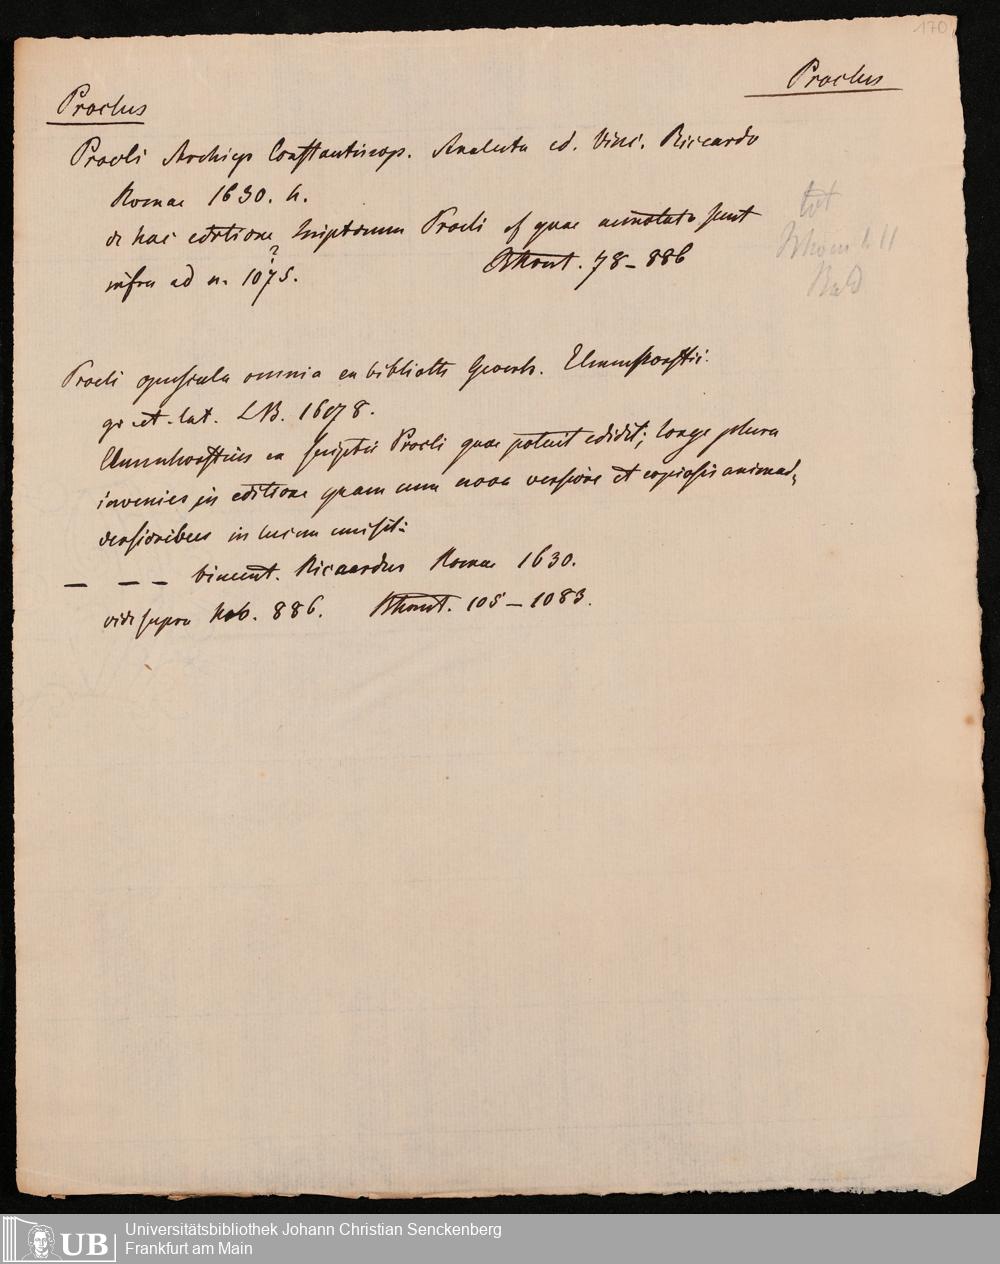 170
Proclus
Proclus
Procli Archiep Constantinop. Analecta ed. Vinc. Riccardo
Romae 1630. 4.
de hac editione Scriptorum Procli cf quae annotata sunt
?
infra ad n. 1075. Bhont. 78–886
Procli opuscula omnia ex biblioth Geverh. Elmenhorstii.
gr. et. lat. LB. 1608.
Elmenhorstius ex scriptis Procli quae potuit edidit; longe plura
invenies in editione quam cum nova versione et copiosis animad-
versionibus in lucem emisit:
— — — Vincent. Riccardus Romae 1630.
vide supra Nob. 886. Bhont. 105–1083.
Universitätsbibliothek Johann Christian Senckenberg
Frankfurt am Main
UB